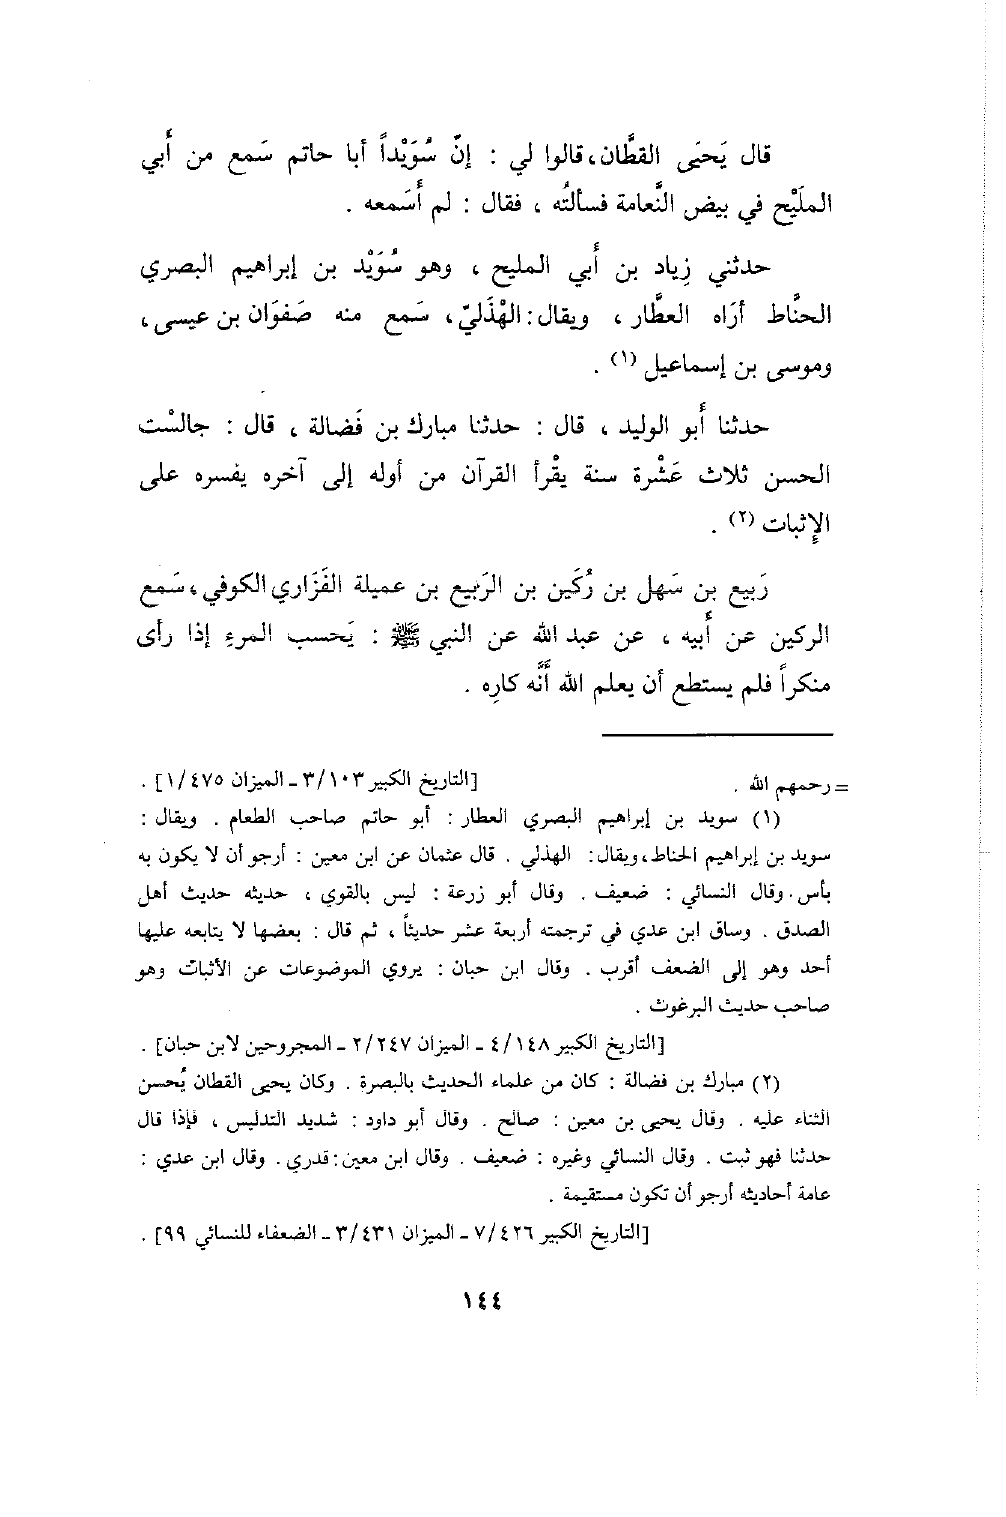 قال يَحيَى القطَّان، قالوا لي : إنّ سُوَيْداً أبا حاتم سَمع من أَبي
المَلَيْح في بيض النَّعامة فسألتُه ، فقال : لم أَسَمعه .
حدثني زِياد بن أَبي المليح ، وهو سُوَيْد بن إبراهيم البصري
الحنَّاط أرَاه العطَّار ، ويقال : الهْذَليّ ، سَمع منه صَفوَان بن عيسى ،
وموسى بن إسماعيل (١) .
حدثنا أَبو الوليد ، قال : حدثنا مبارك بن فَضالة ، قال : جالسْت
الحسن ثلاث عَشْرة سنة يقْرأ القرآن من أوله إلى آخره يفسره على
الإِثبات (٢) .
رَبيع بن سَهل بن رُكَين بن الرَبيع بن عميلة الفَزَاري الكوفي ، سَمع
الركين عن أَبيه ، عن عبد الله عن النبي ﷺ : يَحسب المرءِ إذا رأى
منكراً فلم يستطع أن يعلم الله أَنَّه كارِه .
= رحمهم الله . [التاريخ الكبير ٣/١٠٣ ـ الميزان ١/٤٧٥] .
(١) سويد بن إبراهيم البصري العطار : أبو حاتم صاحب الطعام . ويقال :
سويد بن إبراهيم الحناط ، ويقال : الهذلي . قال عثمان عن ابن معين : أرجو أن لا يكون به
بأس . وقال النسائي : ضعيف . وقال أبو زرعة : ليس بالقوي ، حديثه حديث أهل
الصدق . وساق ابن عدي في ترجمته أربعة عشر حديثاً ، ثم قال : بعضها لا يتابعه عليها
أحد وهو إلى الضعف أقرب . وقال ابن حبان : يروي الموضوعات عن الأثبات وهو
صاحب حديث البرغوث .
[التاريخ الكبير ٤/١٤٨ ـ الميزان ٢/٢٤٧ ـ المجروحين لابن حبان] .
(٢) مبارك بن فضالة : كان من علماء الحديث بالبصرة . وكان يحيى القطان يُحسن
الثناء عليه . وقال يحيى بن معين : صالح . وقال أبو داود : شديد التدليس ، فإذا قال
حدثنا فهو ثبت . وقال النسائي وغيره : ضعيف . وقال ابن معين : قدري . وقال ابن عدي :
عامة أحاديثه أرجو أن تكون مستقيمة .
[التاريخ الكبير ٧/٤٢٦ ـ الميزان ٣/٤٣١ ـ الضعفاء للنسائي ٩٩] .
١٤٤